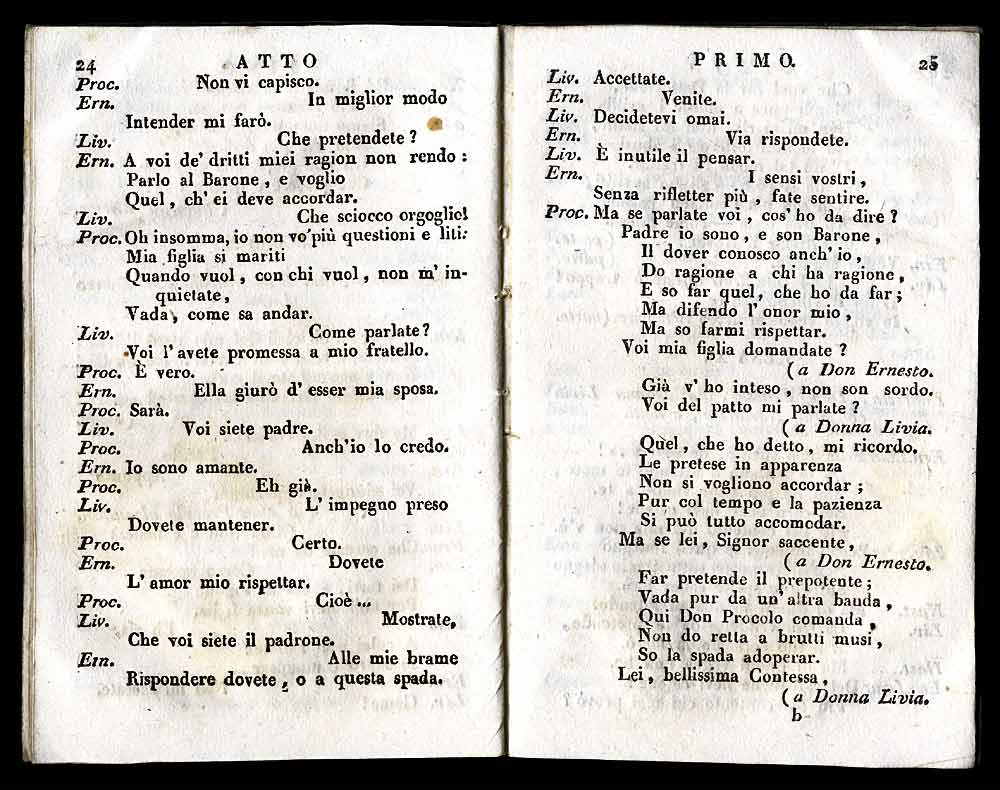 24 ATTO
Proc. Non vi capisco.
Ern. In miglior modo
Intender mi farò.
Liv. Che pretendete ?
Ern. A voi de' dritti miei ragion non rendo :
Parlo al Barone , e voglio
Quel , ch' ei deve accordar.
Liv. Che sciocco orgoglio!
Proc. Oh insomma, io non vo' più questioni e liti:
Mia figlia si mariti
Quando vuol , con chi vuol , non m' in-
quietate ,
Vada , come sa andar.
Liv. Come parlate?
Voi l' avete promessa a mio fratello.
Proc. È vero.
Ern. Ella giurò d' esser mia sposa.
Proc. Sarà.
Liv. Voi siete padre.
Proc. Anch'io lo credo.
Ern. Io sono amante.
Proc. Eh già.
Liv. L' impegno preso
Dovete mantener.
Proc. Certo.
Ern. Dovete
L' amor mio rispettar.
Proc. Cioè ...
Liv. Mostrate,
Che voi siete il padrone.
Ern. Alle mie brame
Rispondere dovete , o a questa spada.
PRIMO. 25
Liv. Accettate.
Ern. Venite.
Liv. Decidetevi omai.
Ern. Via rispondete.
Liv. È inutile il pensar.
Ern. I sensi vostri ,
Senza rifletter più , fate sentire.
Proc. Ma se parlate voi , cos' ho da dire ?
Padre io sono , e son Barone ,
Il dover conosco anch' io ,
Do ragione a chi ha ragione ,
E so far quel, che ho da far ;
Ma difendo l' onor mio ,
Ma so farmi rispettar.
Voi mia figlia domandate ?
( a Don Ernesto.
Già v' ho inteso , non son sordo.
Voi del patto mi parlate ?
( a Donna Livia.
Quel , che ho detto , mi ricordo.
Le pretese in apparenza
Non si vogliono accordar ;
Pur col tempo e la pazienza
Si può tutto accomodar.
Ma se lei , Signor saccente ,
( a Don Ernesto.
Far pretende il prepotente ;
Vada pur da un' altra banda ,
Qui Don Procolo comanda ,
Non do retta a brutti musi ,
So la spada adoperar.
Lei , bellissima Contessa ,
( a Donna Livia.
b